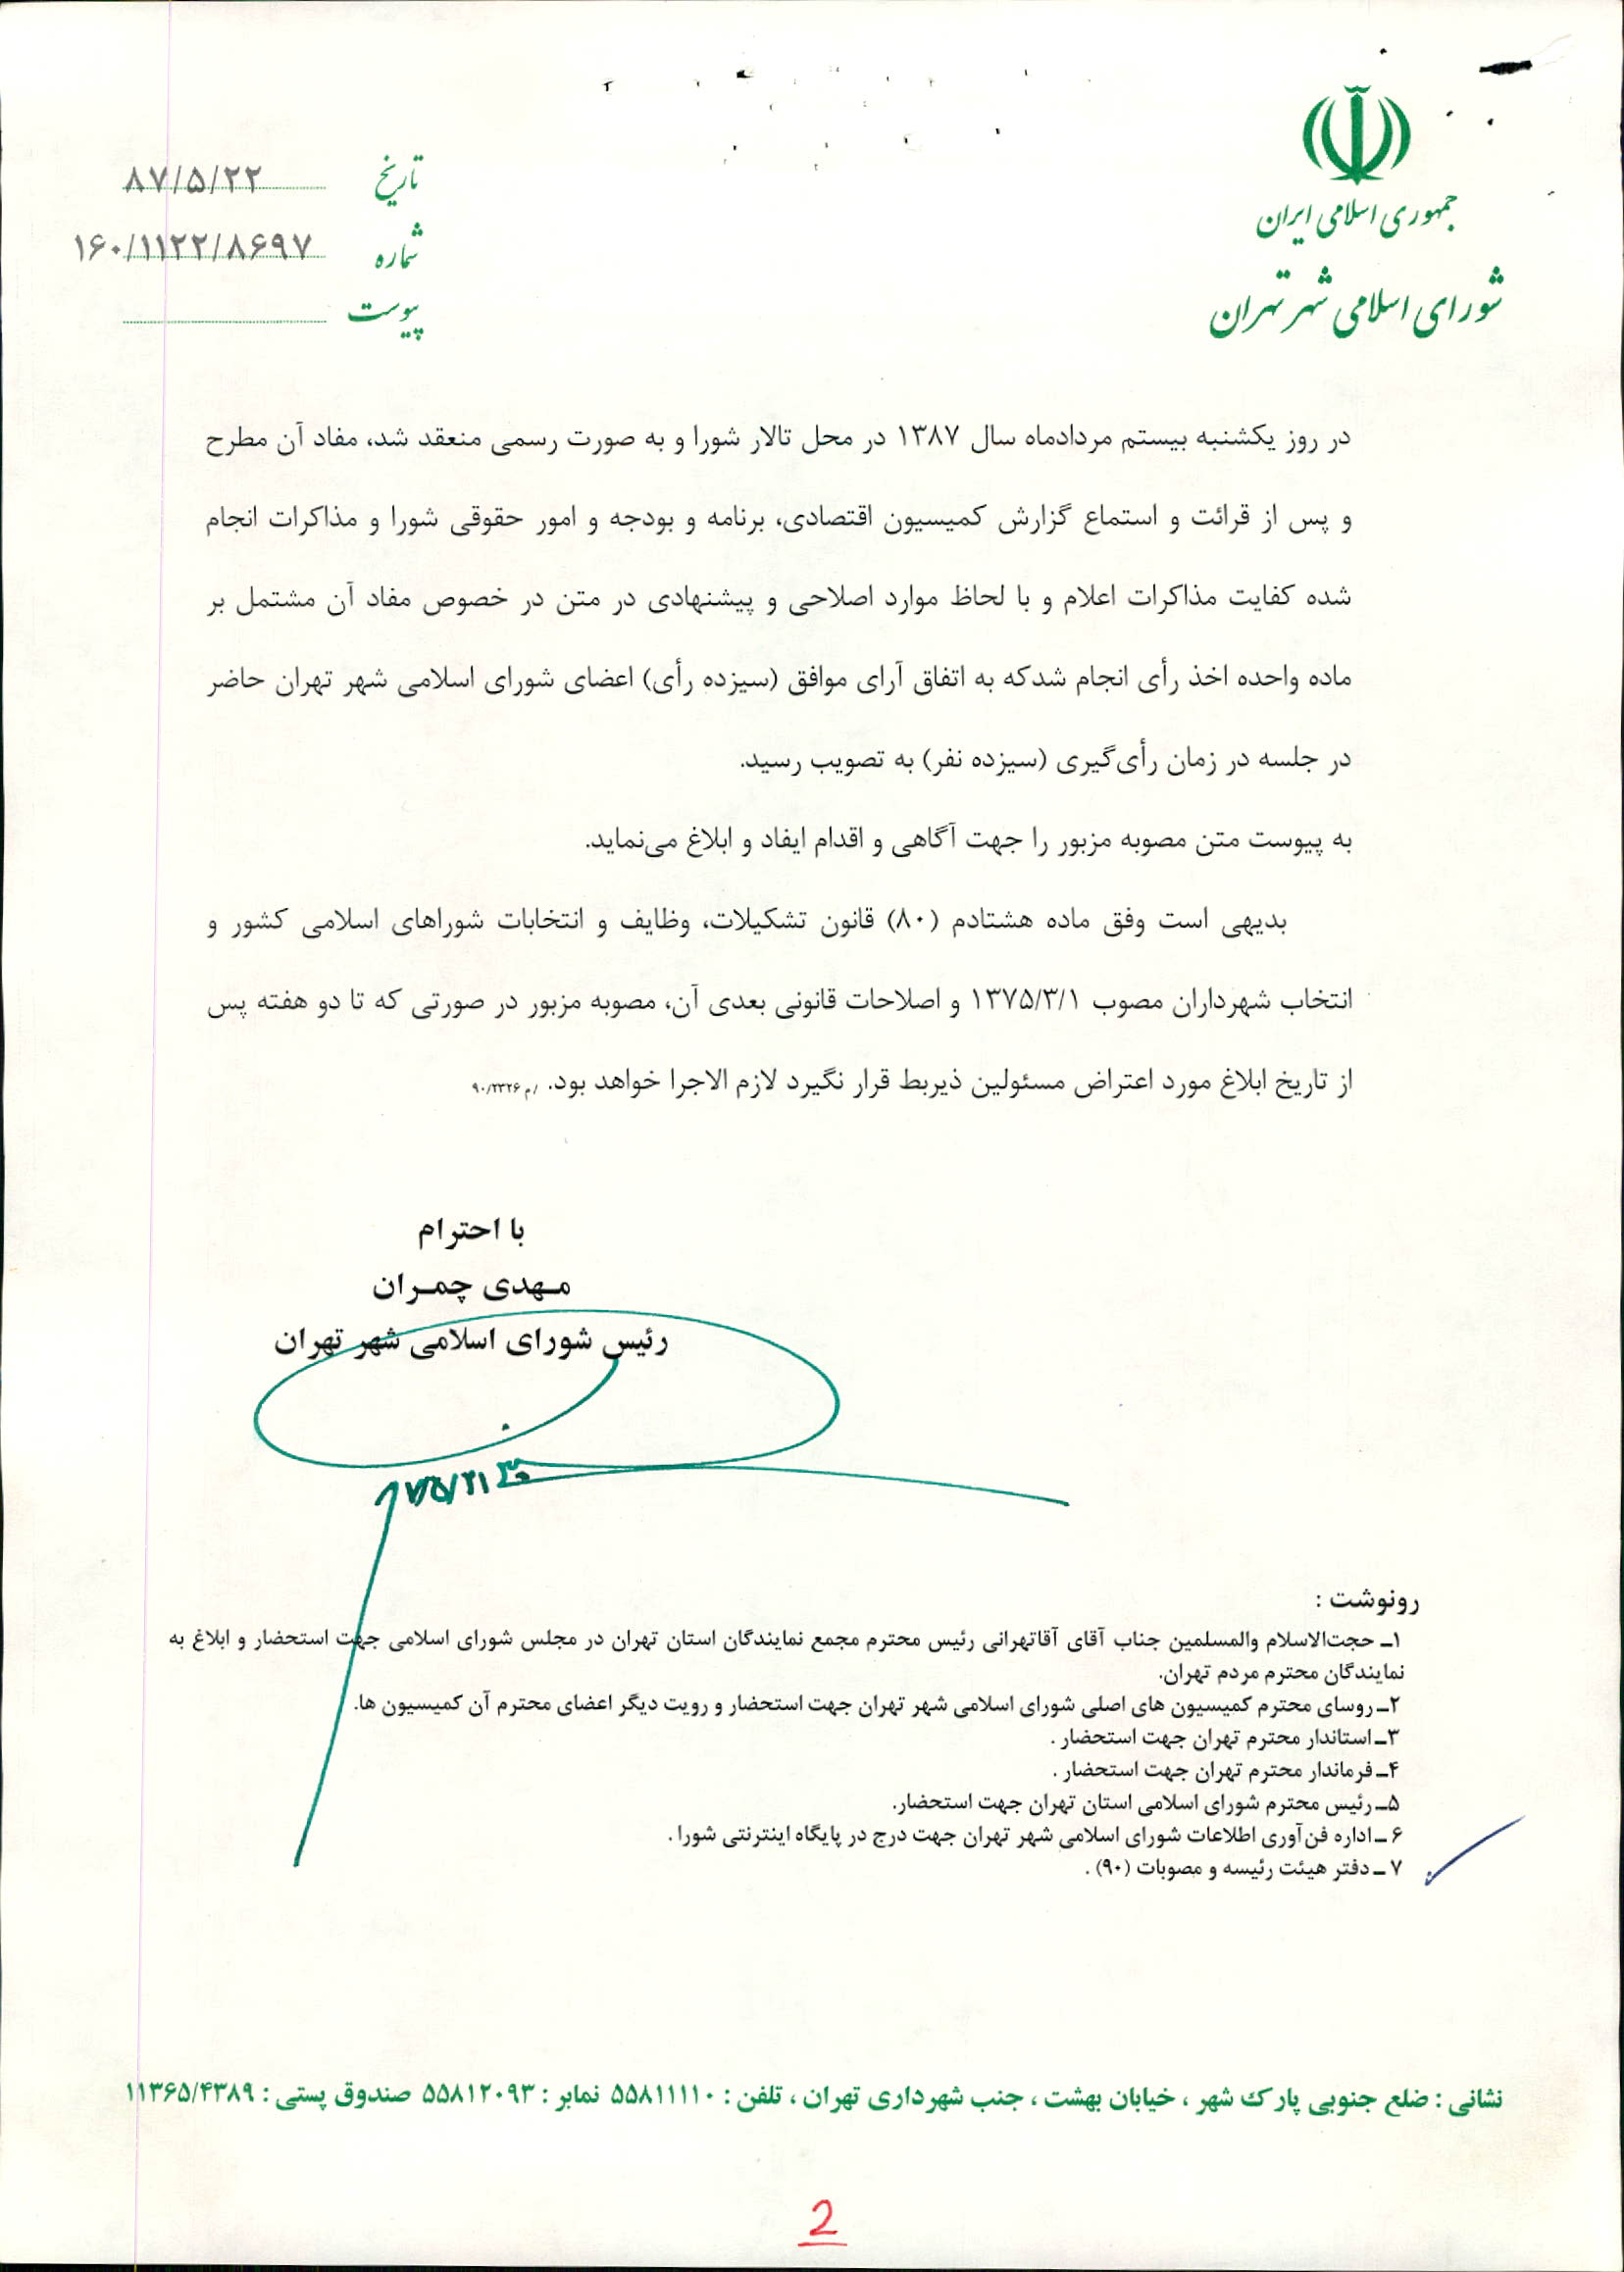 جمهوری اسلامی ایران
شورای اسلامی شهر تهران
تاریخ ۸۷/۵/۲۲
شماره ۱۶۰/۱۱۲۲/۸۶۹۷
پیوست
در روز یکشنبه بیستم مردادماه سال ۱۳۸۷ در محل تالار شورا و به صورت رسمی منعقد شد، مفاد آن مطرح
و پس از قرائت و استماع گزارش کمیسیون اقتصادی، برنامه و بودجه و امور حقوقی شورا و مذاکرات انجام
شده کفایت مذاکرات اعلام و با لحاظ موارد اصلاحی و پیشنهادی در متن در خصوص مفاد آن مشتمل بر
ماده واحده اخذ رأی انجام شدکه به اتفاق آرای موافق (سیزده رأی) اعضای شورای اسلامی شهر تهران حاضر
در جلسه در زمان رأی‌گیری (سیزده نفر) به تصویب رسید.
به پیوست متن مصوبه مزبور را جهت آگاهی و اقدام ایفاد و ابلاغ می‌نماید.
بدیهی است وفق ماده هشتادم (۸۰) قانون تشکیلات، وظایف و انتخابات شوراهای اسلامی کشور و
انتخاب شهرداران مصوب ۱۳۷۵/۳/۱ و اصلاحات قانونی بعدی آن، مصوبه مزبور در صورتی که تا دو هفته پس
از تاریخ ابلاغ مورد اعتراض مسئولین ذیربط قرار نگیرد لازم الاجرا خواهد بود. /م ۹۰/۲۳۲۶
با احترام
مهدی چمران
رئیس شورای اسلامی شهر تهران
رونوشت :
۱ـ حجت‌الاسلام والمسلمین جناب آقای آقاتهرانی رئیس محترم مجمع نمایندگان استان تهران در مجلس شورای اسلامی جهت استحضار و ابلاغ به
نمایندگان محترم مردم تهران.
۲ـ روسای محترم کمیسیون های اصلی شورای اسلامی شهر تهران جهت استحضار و رویت دیگر اعضای محترم آن کمیسیون ها.
۳ـ استاندار محترم تهران جهت استحضار .
۴ـ فرماندار محترم تهران جهت استحضار .
۵ـ رئیس محترم شورای اسلامی استان تهران جهت استحضار.
۶ ـ اداره فن‌آوری اطلاعات شورای اسلامی شهر تهران جهت درج در پایگاه اینترنتی شورا .
۷ ـ دفتر هیئت رئیسه و مصوبات (۹۰) .
نشانی : ضلع جنوبی پارک شهر ، خیابان بهشت ، جنب شهرداری تهران ، تلفن : ۵۵۸۱۱۱۱۰ نمابر : ۵۵۸۱۲۰۹۳ صندوق پستی : ۱۱۳۶۵/۴۳۸۹
2